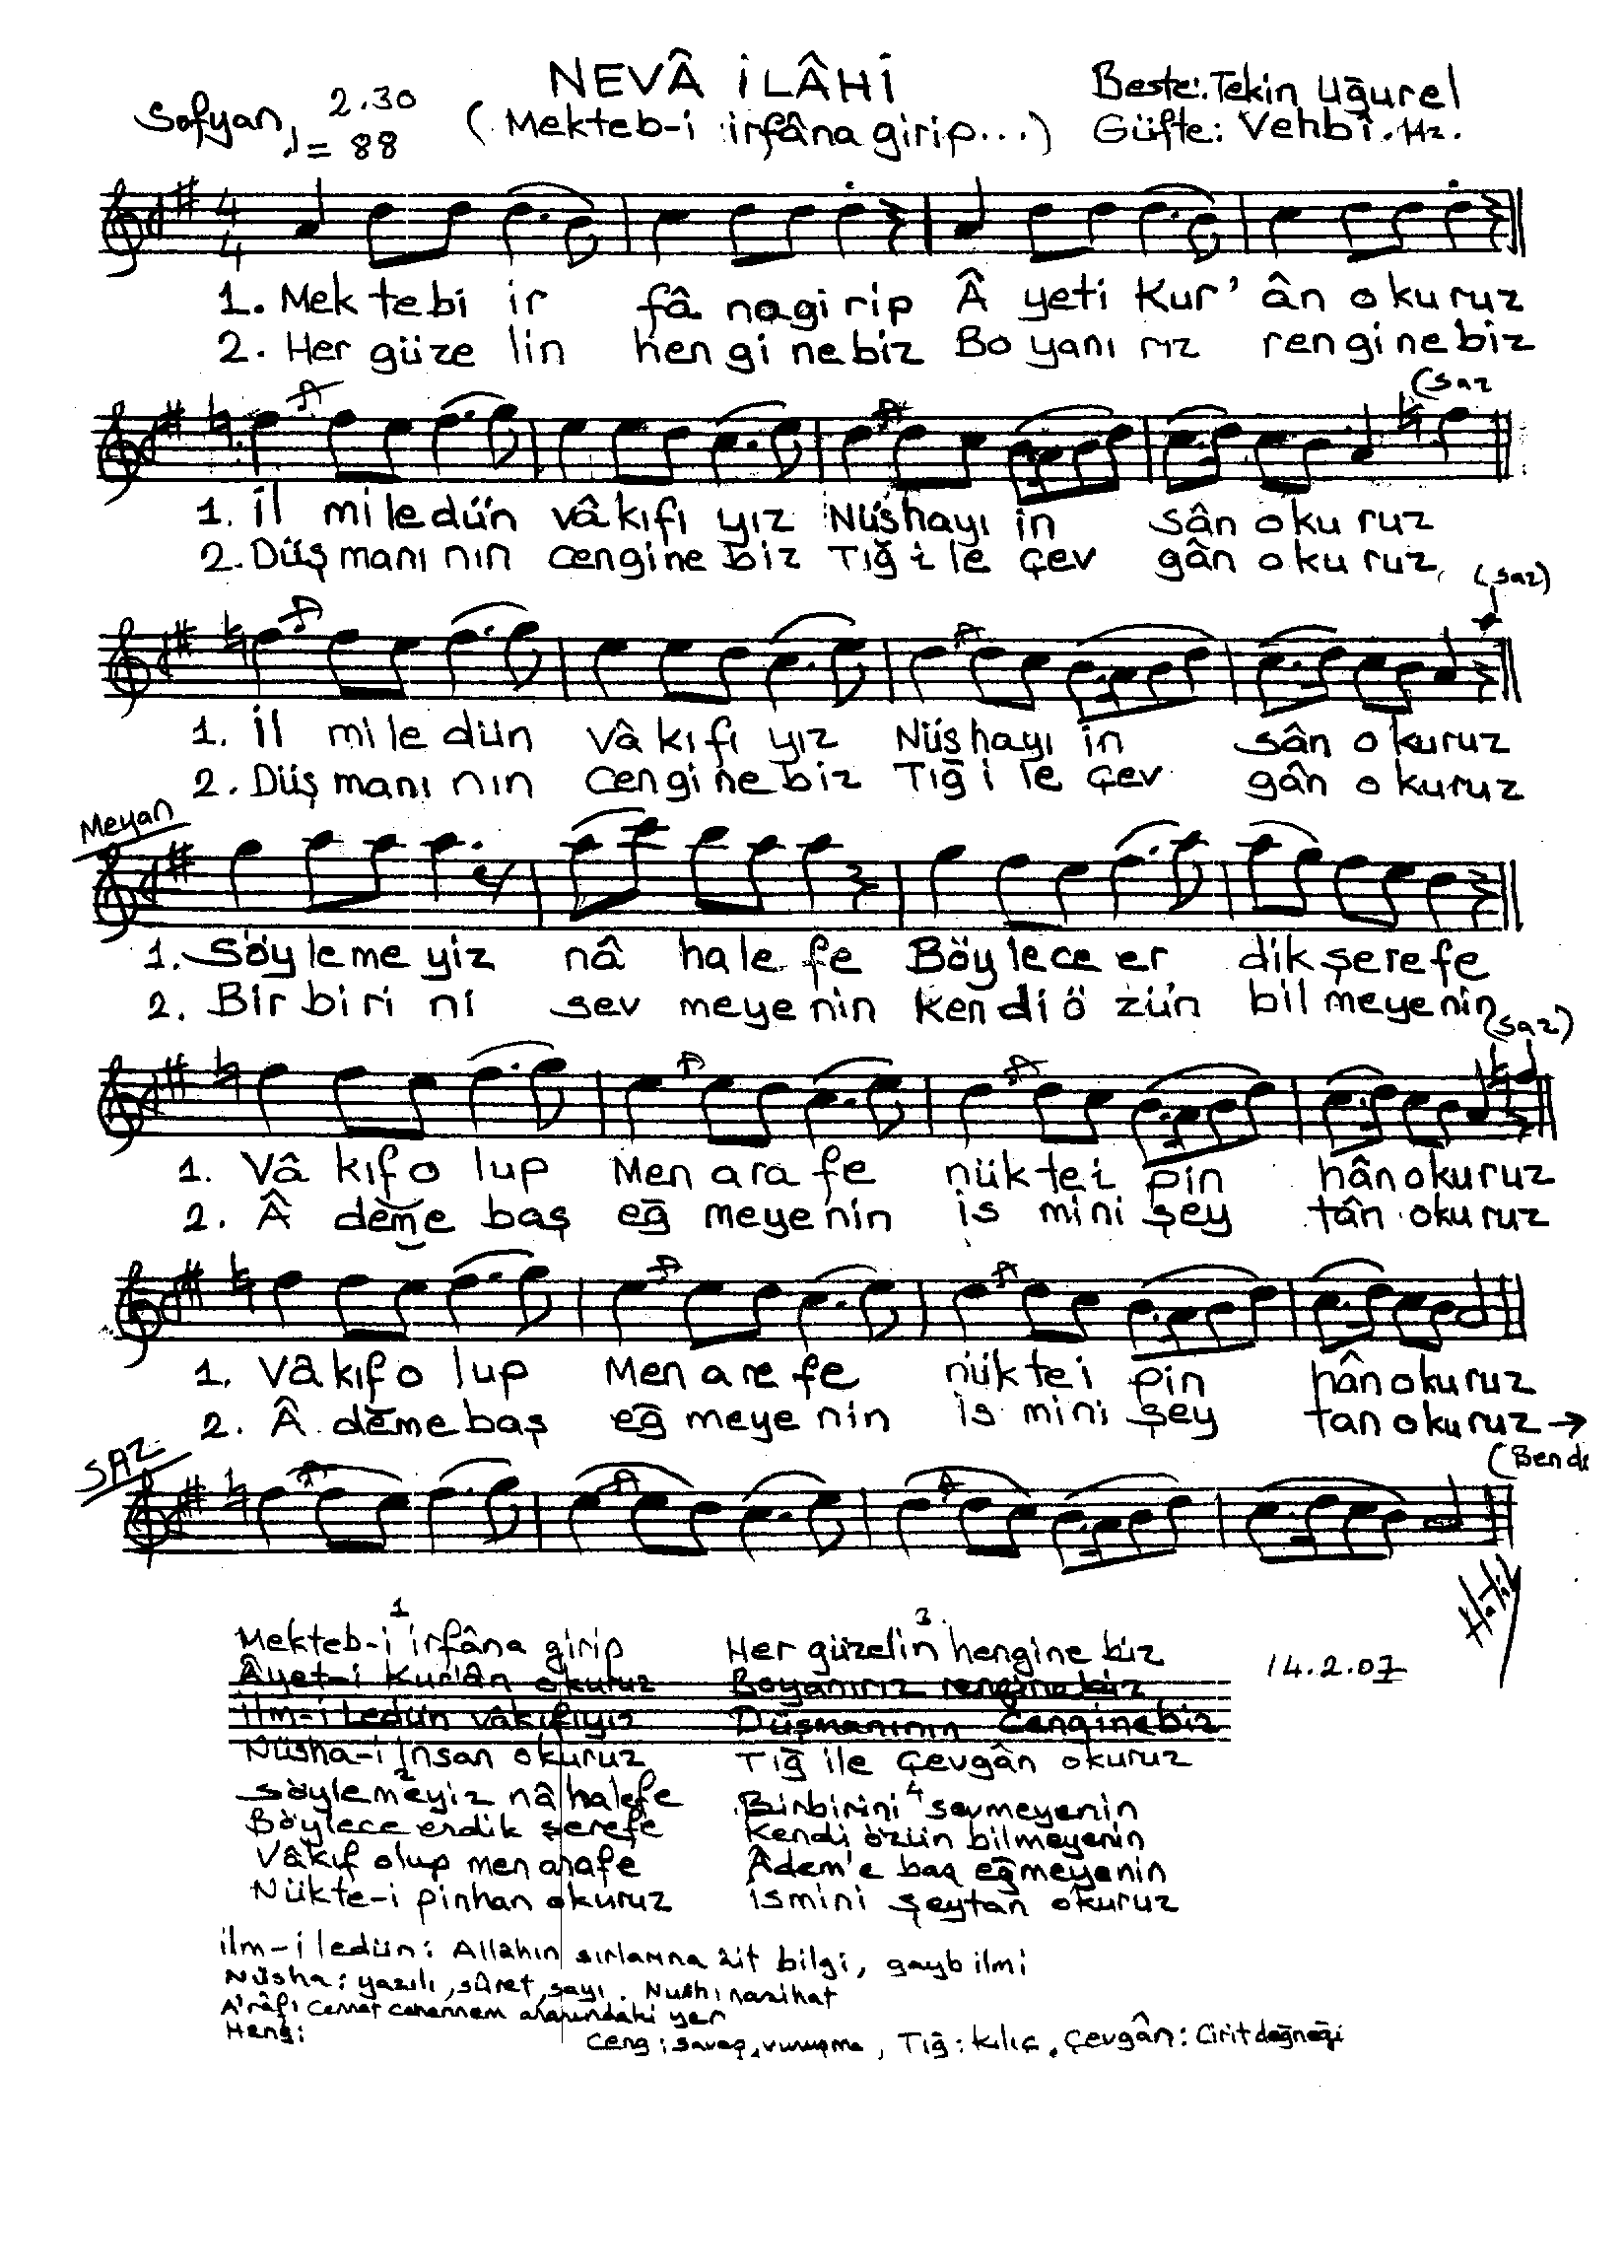 NEVÂ İLÂHİ
Sofyan ♩ = 88 2.30
(Mekteb-i irfâna girip...)
Beste: Tekin Uğurel
Güfte: Vehbi Hz.
4/4
1. Mek tebi ir fâ nagirip  yeti Kur' ân okuruz
2. Her güze lin hengi nebiz Bo yanı rız renginebiz
(saz
1. İl mi ledün vâkıfı yız Nüshayı in sân oku ruz
2. Düş manı nın cenginebiz Tığ i le çev gân okuruz
(saz)
1. İl mi le dün vâ kıfı yız Nüshayı in sân okuruz
2. Düş manı nın cenginebiz Tığ i le çev gân okuruz
Meyan
1. Söyleme yiz nâ hale fe Böylece er dik şerefe
2. Bir biri ni sev meye nin kendi ö zün bil meyenin
(saz)
1. Vâ kıfo lup Men ara fe nüktei pin hân okuruz
2.  deme baş eğ meyenin is mini şey tân okuruz
1. Vâ kıfo lup Men are fe nüktei pin hân okuruz
2.  deme baş eğ meye nin is mini şey tan okuruz →
(Bend
SAZ
1
Mekteb-i irfâna girip
Âyet-i Kur'ân okuruz
İlm-i Ledün vâkıfıyız
Nüsha-i İnsan okuruz
2
Söylemeyiz nâ halefe
Böylece erdik şerefe
Vâkıf olup men arafe
Nükte-i pinhan okuruz
3
Her güzelin hengine biz
Boyanırız rengine biz
Düşmanının Cenginebiz
Tığ ile Çevgân okuruz
4
Birbirini sevmeyenin
Kendi özün bilmeyenin
Âdem'e baş eğmeyenin
ismini şeytan okuruz
14.2.07
ilm-i ledün: Allahın sırlarına âit bilgi, gayb ilmi
Nüsha: yazılı, sûret, sayı. Nush: nasihat
A'râf: Cennet cehennem arasındaki yer
Heng:
Ceng: savaş, vuruşma, Tığ: kılıç, Çevgân: Cirit değneği